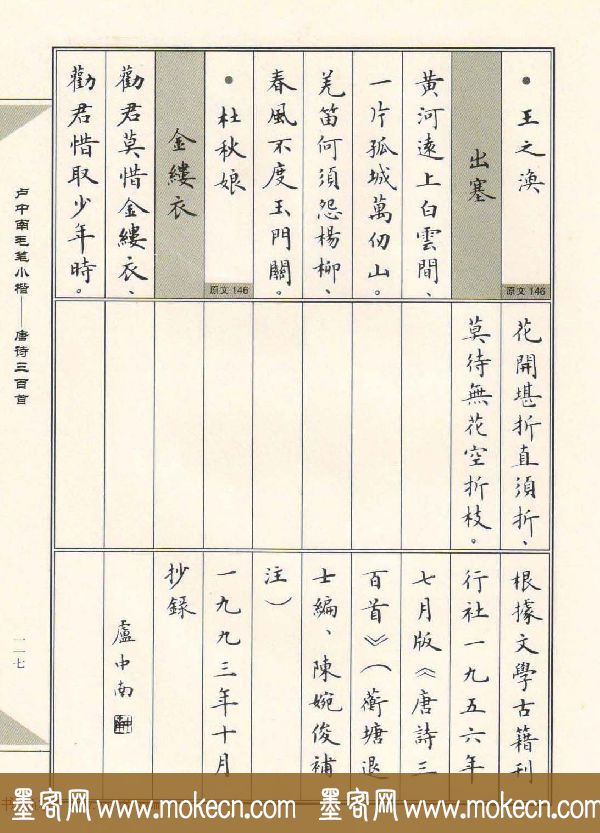 王之渙
原文146
出塞
黃河遠上白雲間、
一片孤城萬仞山。
羌笛何須怨楊柳、
春風不度玉門關。
杜秋娘
原文146
金縷衣
勸君莫惜金縷衣、
勸君惜取少年時。
花開堪折直須折、
莫待無花空折枝。
根據文學古籍刊
行社一九五六年
七月版《唐詩三
百首》（蘅塘退
士編、陳婉俊補
注）
一九九三年十月
抄錄
盧中南
卢中南毛笔小楷——唐诗三百首
一一七
墨客网 www.mokecn.com 墨客网 www.mokecn.com